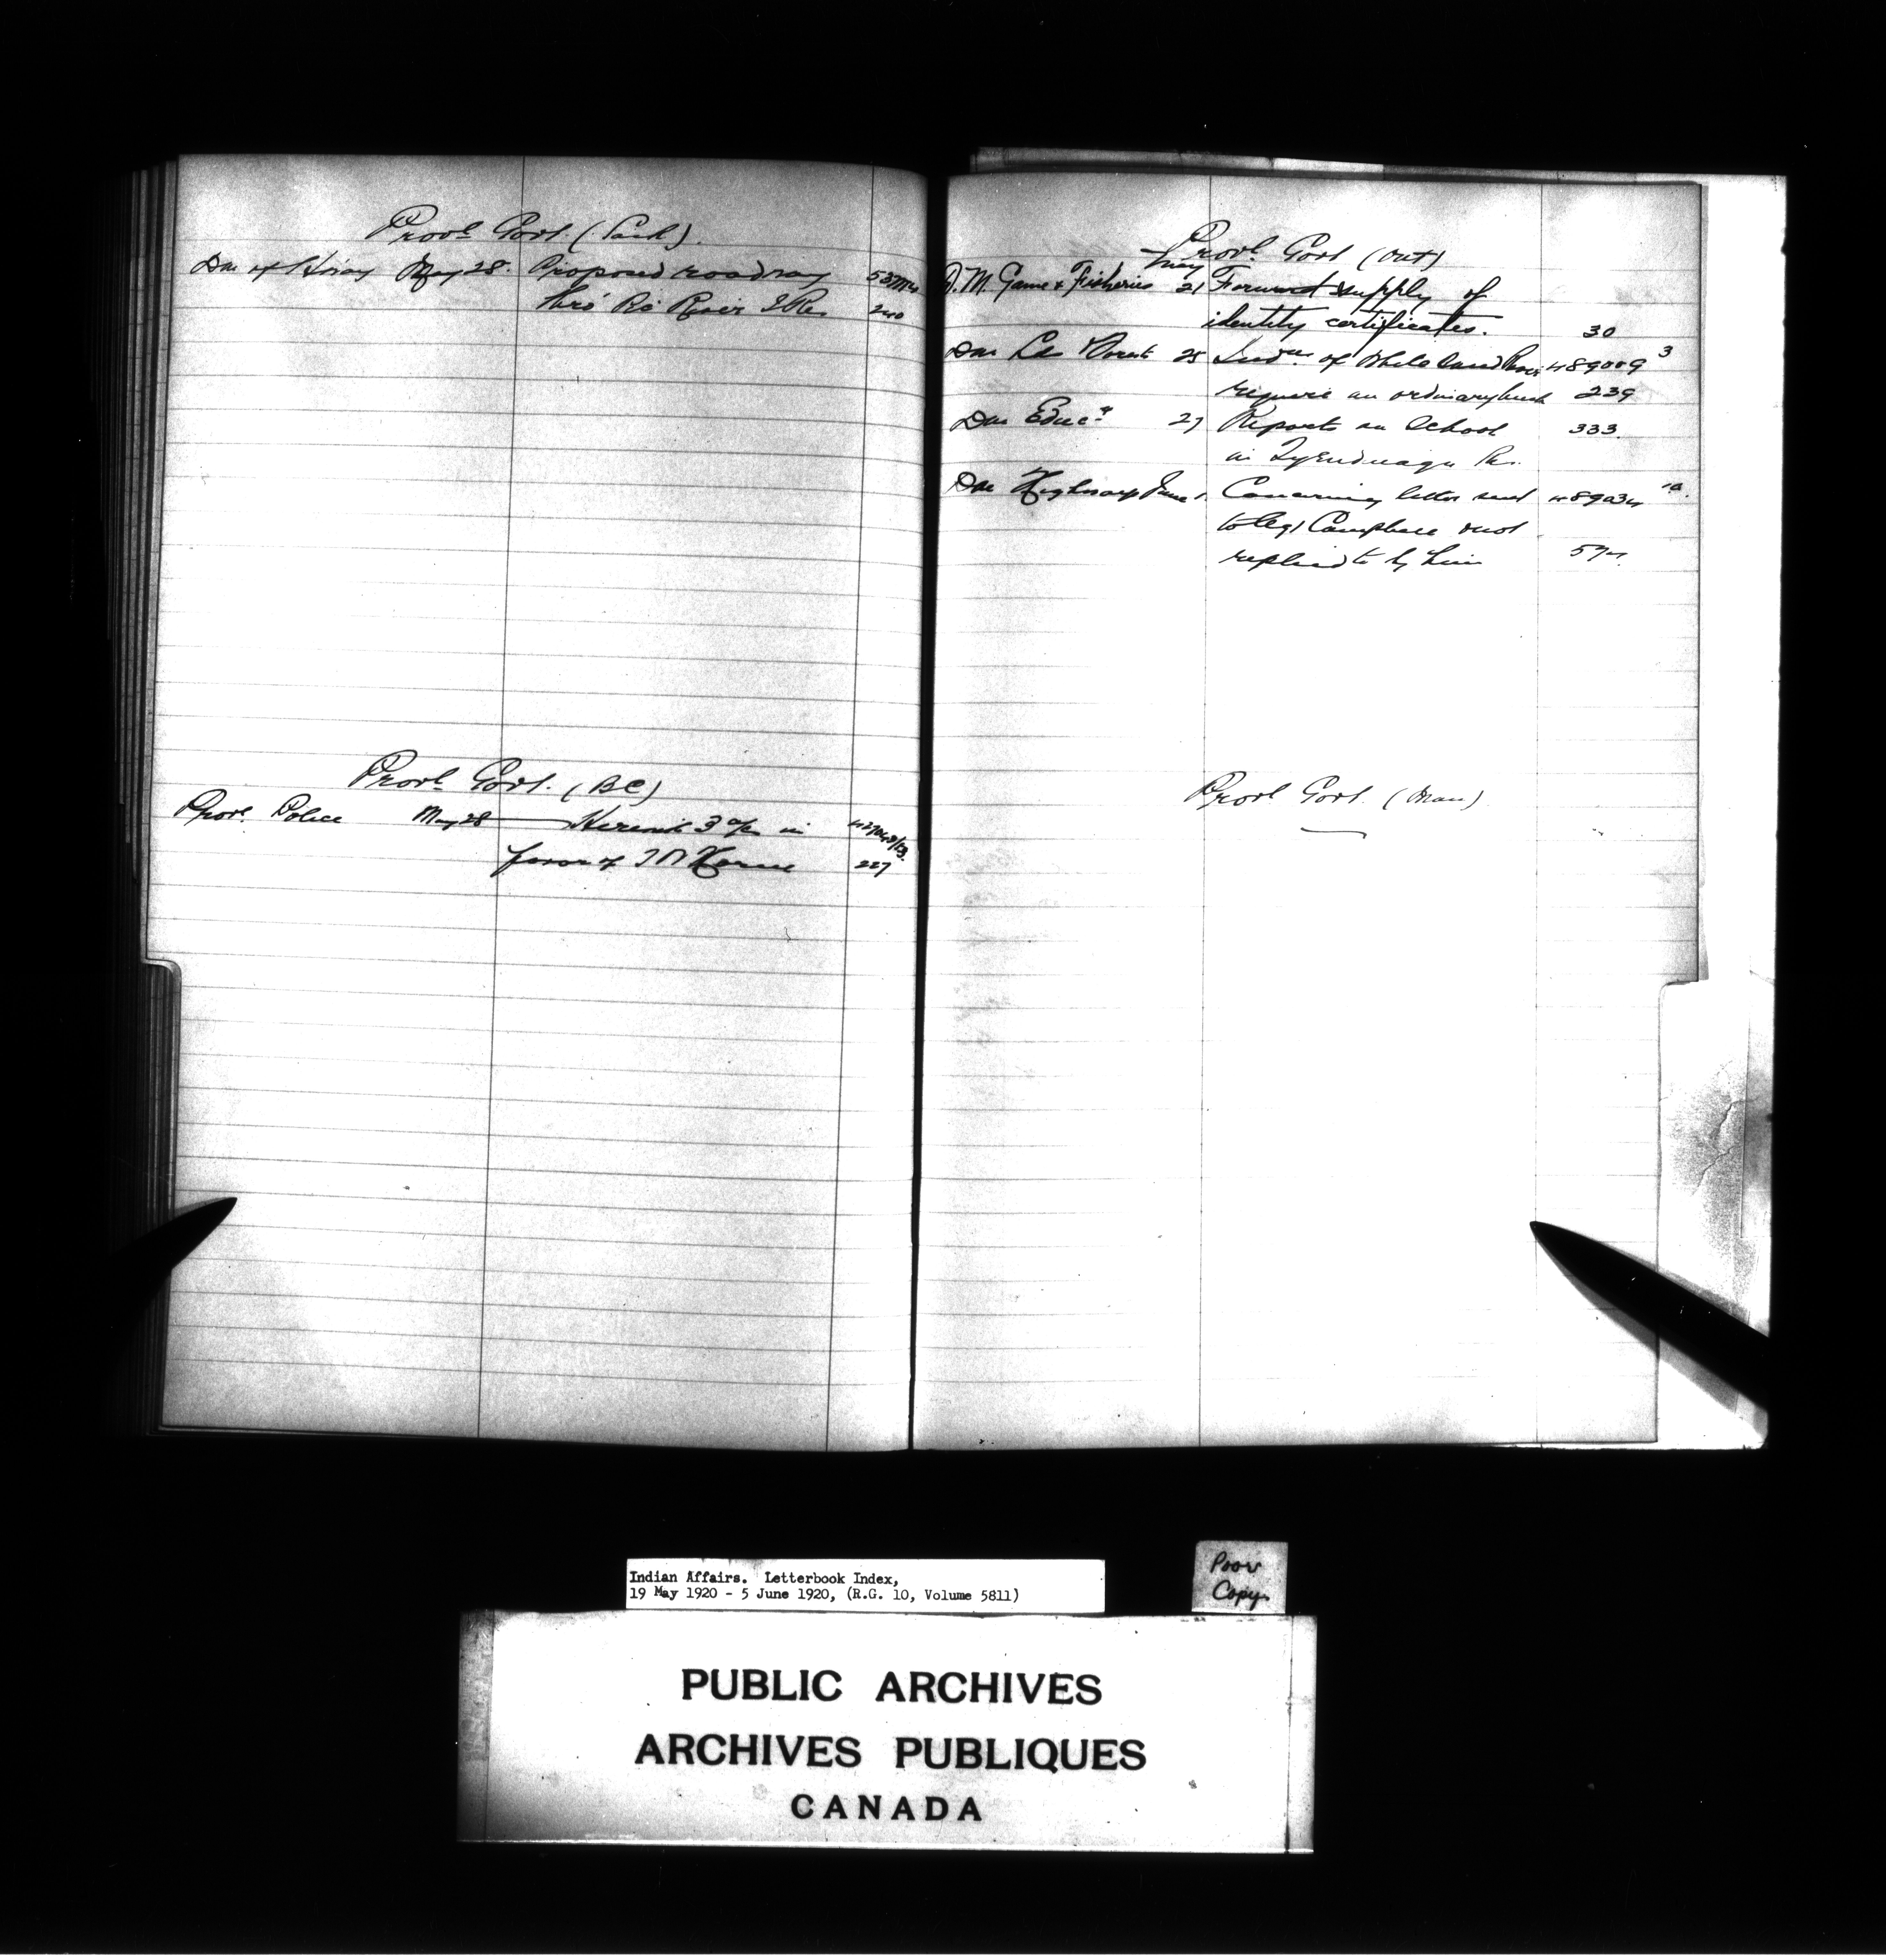 Provl Govt. (Sask).
DM of Hiway May 28. Proposed roadway
thro' River I Re. 240
Provl Govt. (BC)
Provl. Police May 28 Herewith 3 in
favor of 227
Provl Govt (Ont)
May
D. M. Game & Fisheries 21 Forward supply of
identity certificates. 30
DM 25 of White Sand River 489009 3
require an ordinary 239
DM Educn 27 Reports on School 333.
in Tyendinaga Re.
DM Highways June 1. Concerning letter sent
to Campbell & not
replied to by him
Provl Govt. (Man)
Indian Affairs. Letterbook Index,
19 May 1920 - 5 June 1920, (R.G. 10, Volume 5811)
Poor
Copy
PUBLIC ARCHIVES
ARCHIVES PUBLIQUES
CANADA